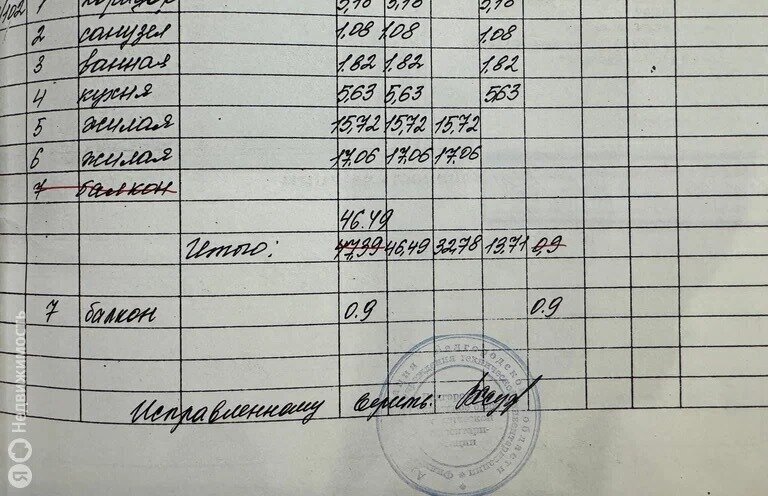 1 коридор 5,18 5,18 5,18
2 санузел 1,08 1,08 1,08
3 ванная 1,82 1,82 1,82
4 кухня 5,63 5,63 5,63
5 жилая 15,72 15,72 15,72
6 жилая 17,06 17,06 17,06
7 балкон
46.49
Итого: 47,39 46,49 32,78 13,71 0,9
7 балкон 0.9 0.9
Исправленному верить.
Недвижимость
Я